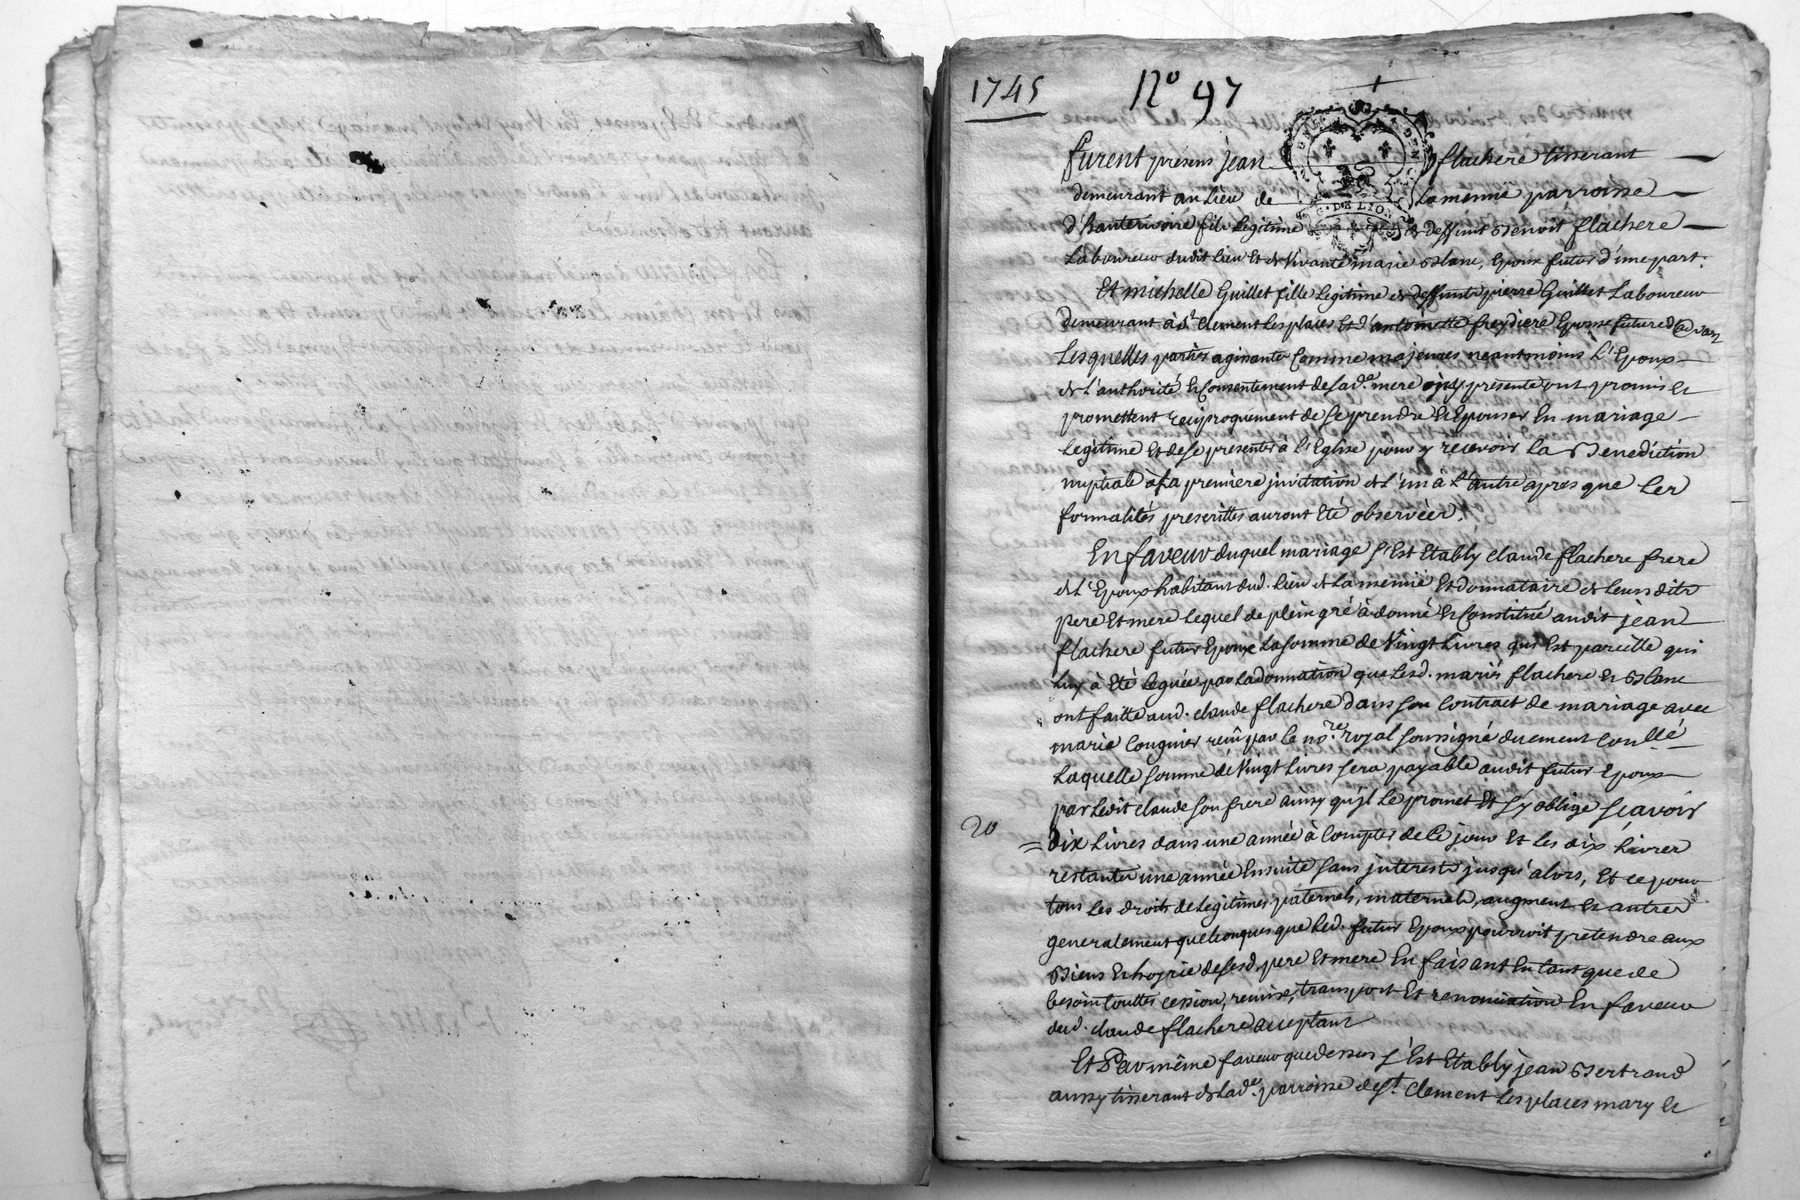 1745
N° 97
furent presens jean flachere tisserant
demeurant au Lieu de Lamenue parroisse
d'hauterivoire fils Legitime de deffunt Benoit flachere
Laboureur dudit Lieu Et de Vivante marie Blanc, Epoux futur d'une part.
Et michelle Guillet fille Legitime de deffunts pierre Guillet Laboureur
demeurant à St. Clement Les places Et d'antoinette freydiere Epouse future d'autre part
Lesquelles parties agissantes Comme majeures neantmoins L'Epoux
de L'authorité & Consentement de Lad.e mere icy presente ont promis &
promettent reciproquement de se prendre & Epouser En mariage
Legitime Et de se presenter à L'Eglise pour y recevoir La Benediction
nuptiale à La premiere jnvitation de L'un à L'autre apres que Les
formalités prescrittes auront Eté observéés.
En faveur duquel mariage s'Est Etably claude flachere frere
de L'Epoux habitant dud. Lieu de Lamenue Et donnataire de Leursdits
pere Et mere Lequel de plein gré à donné & Constitué audit jean
flachere futur Epoux La somme de Vingt Livres qui Est pareille qui
Luy à Eté Leguée par La donnation que Lesd. mariés flachere & Blanc
ont faitte aud. claude flachere dans son Contract de mariage avec
marie Couginer reçû par Le no.re royal soussigné duement Con.llé
Laquelle somme de Vingt Livres sera payable audit futur Epoux
par Ledit claude son frere ainsy qu'jl Le promet Et s'y oblige sçavoir
20
= dix Livres dans une année à Compter de Ce jour Et Les dix Livres
restantes une année Ensuite sans jnterests jusqu'alors, Et ce pour
tous Les droits de Legitimes paternels, maternels, augment & autres
generalement quelconques que Led. futur Epoux pourroit pretendre aux
Biens & hoyrie de sesd. pere Et mere En faisant En tant que de
besoin touttes cession, remise, transport Et renonciation En faveur
dud. claude flachere acceptant
Et Par même faveur que dessus s'Est Etably jean Bertrand
aussy tisserant de Lad.e parroisse de St. Clement Les places mary &